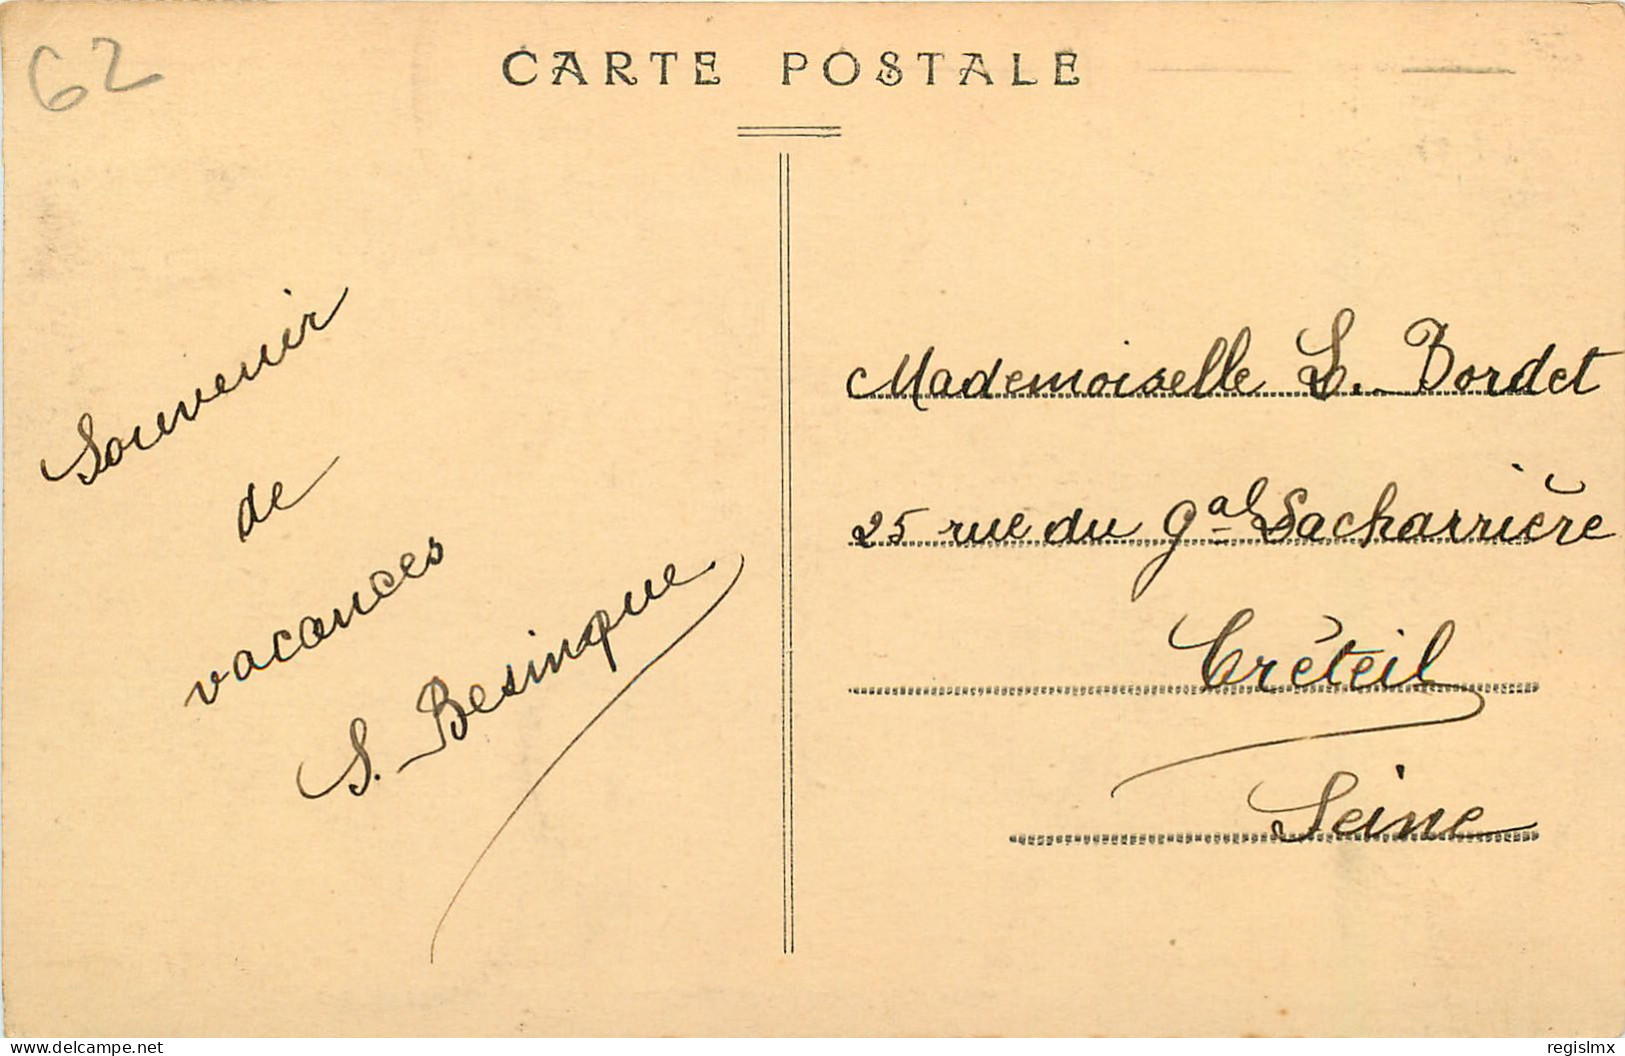 62
CARTE POSTALE
Souvenir
de
vacances
S. Besinque
Mademoiselle L. Bordet
25 rue du Gal Lacharrière
Créteil
Seine
www.delcampe.net
regislmx